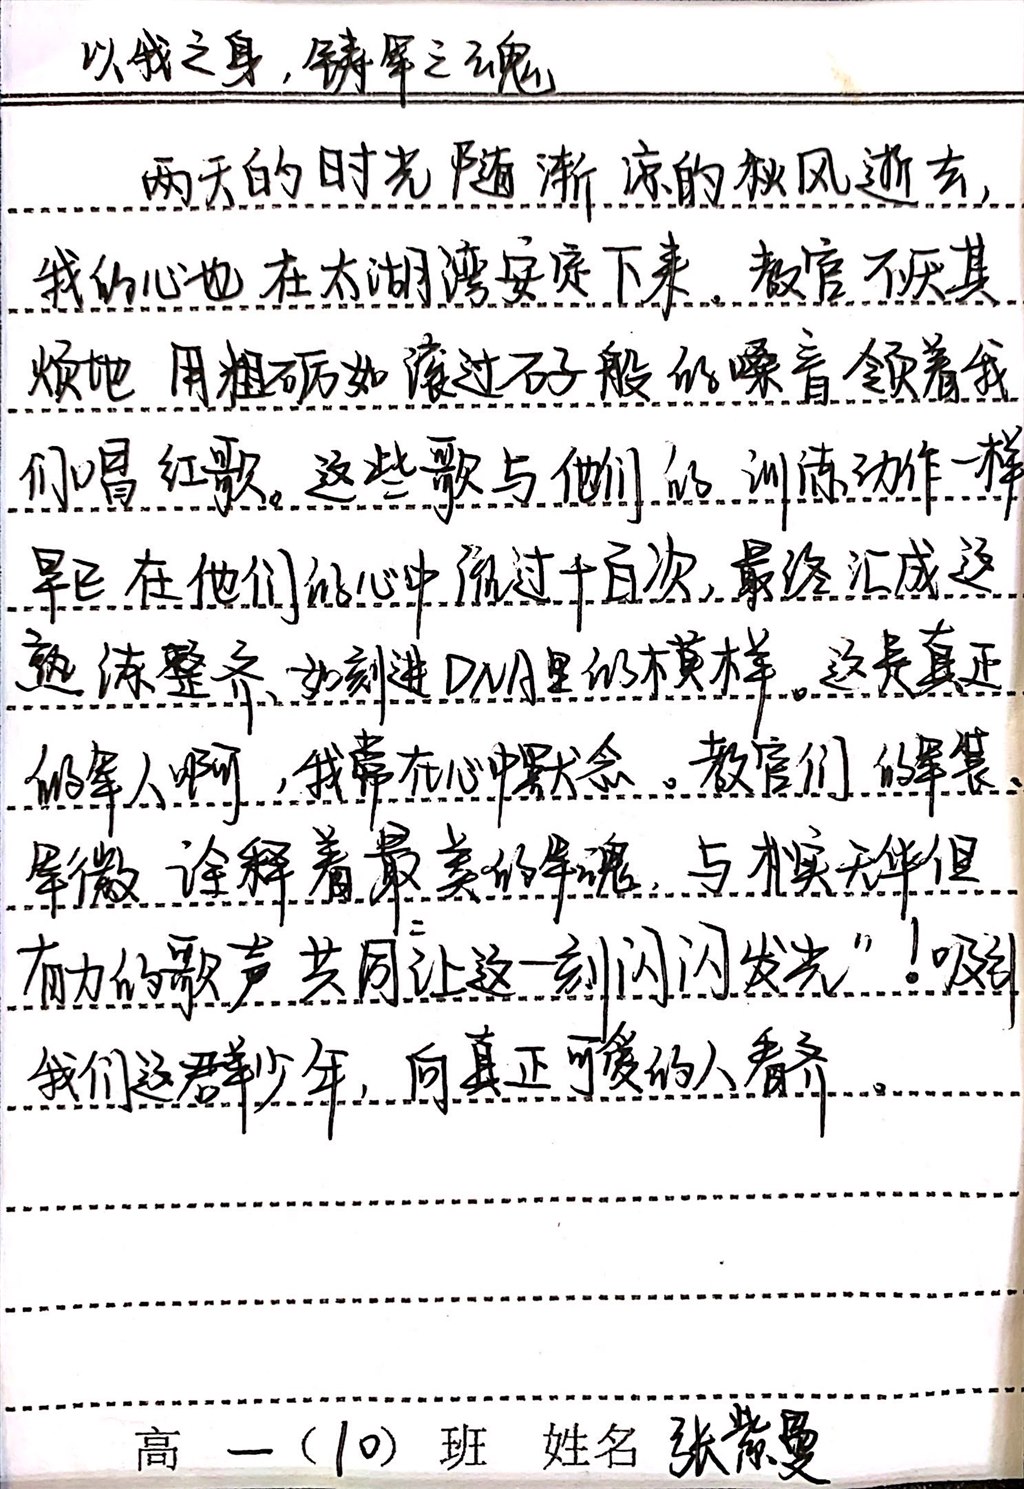 以我之身，铸军之魂
两天的时光随渐凉的秋风逝去，
我的心也在太湖湾安定下来。教官不厌其
烦地用粗砺如滚过石子般的嗓音领着我
们唱红歌。这些歌与他们的训练动作一样
早已在他们的心中流过千百次，最终汇成这
熟练整齐、如刻进DNA里的模样。这是真正
的军人啊，我常在心中默念。教官们的军装、
军徽诠释着最美的军魂，与朴实无华但
有力的歌声共同“让这一刻闪闪发光”！吸引
我们这群少年，向真正可爱的人看齐。
高一（10）班 姓名 张紫曼